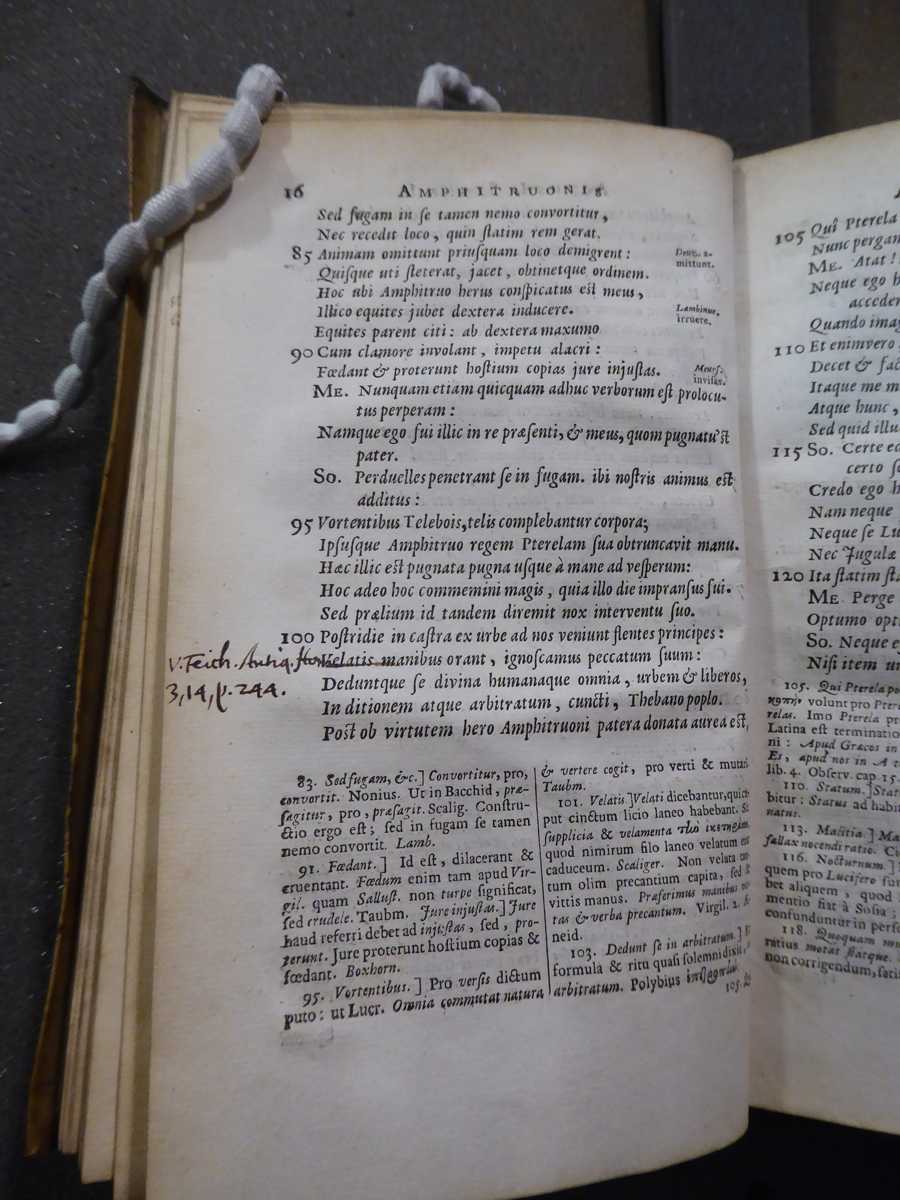 16 AMPHITRUONIS
Sed fugam in se tamen nemo convortitur,
Nec recedit loco, quin ſtatim rem gerat.
85 Animam omittunt priuſquam loco demigrent:
Quiſque uti ſteterat, jacet, obtinetque ordinem.
Hoc ubi Amphitruo herus conſpicatus eſt meus,
Illico equites jubet dextera inducere.
Equites parent citi: ab dextera maxumo
90 Cum clamore involant, impetu alacri:
Fœdant & proterunt hoſtium copias jure injuſtas.
ME. Nunquam etiam quicquam adhuc verborum eſt prolocu-
tus perperam:
Namque ego fui illic in re præſenti, & meus, quom pugnatu'ſt
pater.
SO. Perduelles penetrant ſe in fugam. ibi noſtris animus eſt
additus:
95 Vortentibus Telebois, telis complebantur corpora;
Ipſuſque Amphitruo regem Pterelam ſua obtruncavit manu.
Hæc illic eſt pugnata pugna uſque à mane ad veſperum:
Hoc adeo hoc commemini magis, quia illo die impranſus fui.
Sed prælium id tandem diremit nox interventu ſuo.
100 Poſtridie in caſtra ex urbe ad nos veniunt flentes principes:
Velatis manibus orant, ignoſcamus peccatum ſuum:
Deduntque ſe divina humanaque omnia, urbem & liberos,
In ditionem atque arbitratum, cuncti, Thebano poplo.
Poſt ob virtutem hero Amphitruoni patera donata aurea eſt,
Douz. a-
mittunt.
Lambinus,
irruere.
Meurſ.
inviſas.
V. Feith. Antiq. Hom
3,14, p. 244.
83. Sed fugam, &c.] Convortitur, pro,
convortit. Nonius. Ut in Bacchid, præ-
ſagitur, pro, præſagit. Scalig. Conſtru-
ctio ergo eſt; ſed in fugam ſe tamen
nemo convortit. Lamb.
91. Fœdant.] Id eſt, dilacerant &
cruentant. Fœdum enim tam apud Vir-
gil. quam Salluſt. non turpe ſignificat,
ſed crudele. Taubm. Jure injuſtas.] Jure
haud referri debet ad injuſtas, ſed, pro-
terunt. Jure proterunt hoſtium copias &
fœdant. Boxhorn.
95. Vortentibus.] Pro verſis dictum
puto: ut Lucr. Omnia commutat natura
& vertere cogit, pro verti & mutari
Taubm.
101. Velatis] Velati dicebantur, qui
put cinctum licio laneo habebant.
ſupplicia & velamenta
quod nimirum filo laneo velatum
caduceum. Scaliger. Non velata
tum olim precantium capita, ſed &
vittis manus. Præferimus manibus
tas & verba precantum. Virgil. 2.
neid.
103. Dedunt ſe in arbitratum.]
formula & ritu quaſi ſolemni dixit,
arbitratum. Polybius
105.
105 Quî Pterela
Nunc pergam
ME. Atat!
Neque ego h
acceder
Quando imag
110 Et enimvero,
Decet & fac
Itaque me m
Atque hunc,
Sed quid illu
115 SO. Certe ed
certo ſc
Credo ego h
Nam neque
Neque ſe Lu
Nec Jugulæ
120 Ita ſtatim ſta
ME. Perge
Optumo opt
SO. Neque e
Niſi item un
105. Qui Pterela po
volunt pro Pter
relas. Imo Pterela pr
Latina eſt termination
ni: Apud Græcos in
Es, apud nos in A t
lib. 4. Obſerv. cap. 15.
110. Statum.] Stat
bitur: Status ad habit
natur.
113. Malitia.] Ma
fallax nocendi ratio. Ci
116. Nocturnum.]
quem pro Lucifero ſu
bet aliquem, quod
mentio fiat à Soſia;
confunduntur in perſ
118. Quoquam mu
ratius motas ſtatque.
non corrigendum, ſatis